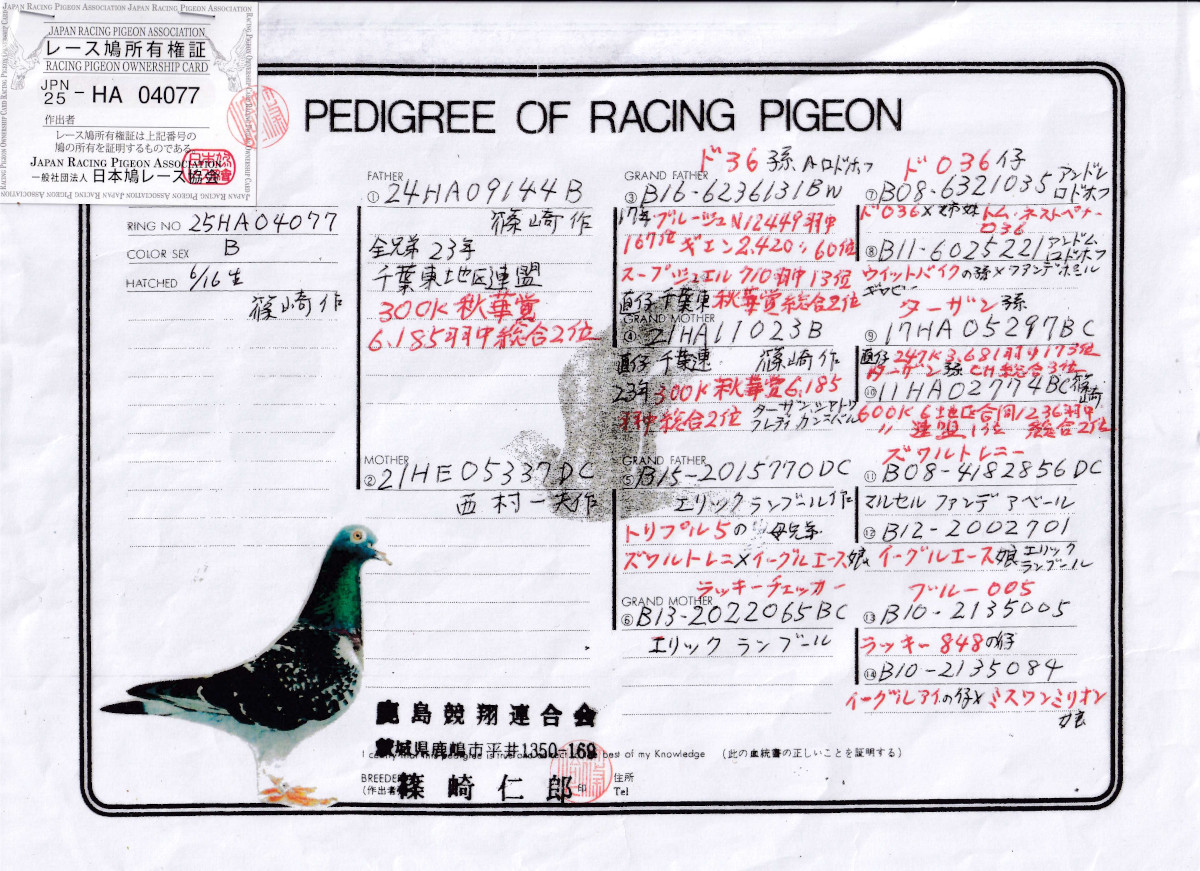 JAPAN RACING PIGEON ASSOCIATION
レース鳩所有権証
RACING PIGEON OWNERSHIP CARD
JPN
25 - HA 04077
作出者
レース鳩所有権証は上記番号の
鳩の所有を証明するものである。
JAPAN RACING PIGEON ASSOCIATION
一般社団法人 日本鳩レース協会
PEDIGREE OF RACING PIGEON
RING NO 25HA04077
COLOR SEX B
HATCHED 6/16生
篠崎作
FATHER
① 24HA09144B
篠崎作
全兄弟 23年
千葉東地区連盟
300K秋華賞
6.185羽中総合2位
MOTHER
② 21HE05337DC
西村一夫作
ド36孫 Aロドホフ
GRAND FATHER
③ B16-6236131BW
17年ブルージュN12449羽中
167位 ギエン2,420〃60位
スープジュエル710羽中13位
直仔千葉東秋華賞総合2位
GRAND MOTHER
④ 21HA11023B
直仔千葉連 篠崎作
23年300K秋華賞6,185
羽中総合2位
GRAND FATHER
⑤ B15-2015770DC
エリックランブール作
トリプル5の 母兄弟
ズワルトレニ×イーグルエース娘
ラッキーチェッカー
GRAND MOTHER
⑥ B13-2022065BC
エリック ランブール
ド036仔
⑦ B08-6321035 アンドレ
ロドホフ
ド036×姉妹トム・ネストペナー
036
⑧ B11-6025221 アンドム
ロドホフ
ウイットバイクの孫×ファンデ
ターザン孫
⑨ 17HA05297BC
直仔247K3,681羽中173位
ターザン孫CH総合3位
⑩ 11HA02774BC 篠崎
600K6地区合同1236羽中
〃 連盟1位 総合2位
ズワルトレニー
⑪ B08-4182856DC
マルセル ファンデ アベール
⑫ B12-2002701
イーグルエース娘 エリック
ランブール
ブルー005
⑬ B10-2135005
ラッキー848の仔
⑭ B10-2135084
イーグルアイの仔×ミスワンミリオン
娘
鹿島競翔連合会
茨城県鹿嶋市平井1350-169
I certify that this pedigree is true and correct to the best of my Knowledge (此の血統書の正しいことを証明する)
BREEDER
(作出者) 篠崎仁郎 印
住所
Tel